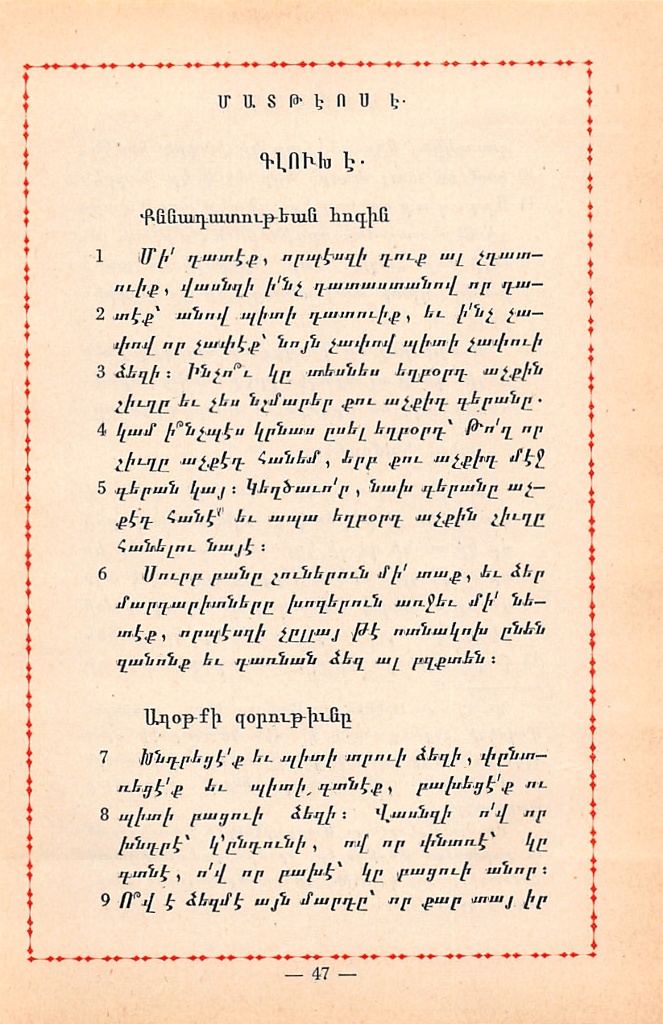 ՄԱՏԹԷՈՍ Է.
ԳԼՈՒԽ Է.
Քննադատութեան հոգին
1 Մի՛ դատէք, որպէսզի դուք ալ չդատ—
ուիք, վասնզի ի՛նչ դատաստանով որ դա—
2 տէք՝ անով պիտի դատուիք, եւ ի՛նչ չա—
փով որ չափէք՝ նոյն չափով պիտի չափուի
3 ձեզի: Ինչո՞ւ կը տեսնես եղբօրդ աչքին
շիւղը եւ չես նշմարեր քու աչքիդ գերանը.
4 կամ ի՞նչպէս կրնաս ըսել եղբօրդ՝ Թո՛ղ որ
շիւղը աչքէդ հանեմ, երբ քու աչքիդ մէջ
5 գերան կայ: Կեղծաւո՛ր, նախ գերանը աչ—
քէդ հանէ՛ եւ ապա եղբօրդ աչքին շիւղը
հանելու նայէ:
6 Սուրբ բանը շուներուն մի՛ տաք, եւ ձեր
մարգարիտները խոզերուն առջեւ մի՛ նե—
տէք, որպէսզի չըլլայ թէ ոտնակոխ ընեն
զանոնք եւ դառնան ձեզ ալ բզքտեն:
Աղօթքի զօրութիւնը
7 Խնդրեցէ՛ք եւ պիտի տրուի ձեզի, փընտ—
ռեցէ՛ք եւ պիտի գտնէք, բախեցէ՛ք ու
8 պիտի բացուի ձեզի: Վասնզի ո՛վ որ
խնդրէ՝ կ՚ընդունի, ով որ փնտռէ՝ կը
գտնէ, ո՛վ որ բախէ՝ կը բացուի անոր:
9 Ո՞վ է ձեզմէ այն մարդը՝ որ քար տայ իր
— 47 —